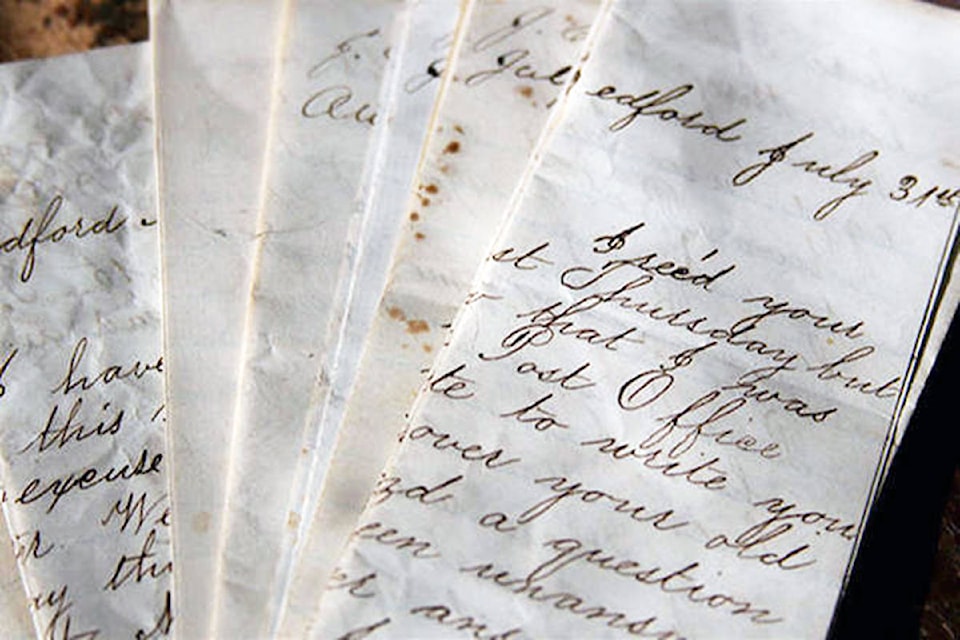 dford
I have
this
excuse
We
thi
J.
Au
J.
Jul
edford July 31st
I rec'd your
st Thursday but
that I was
Post Office
te to write you
over your old
nd a question
een unans
er ans